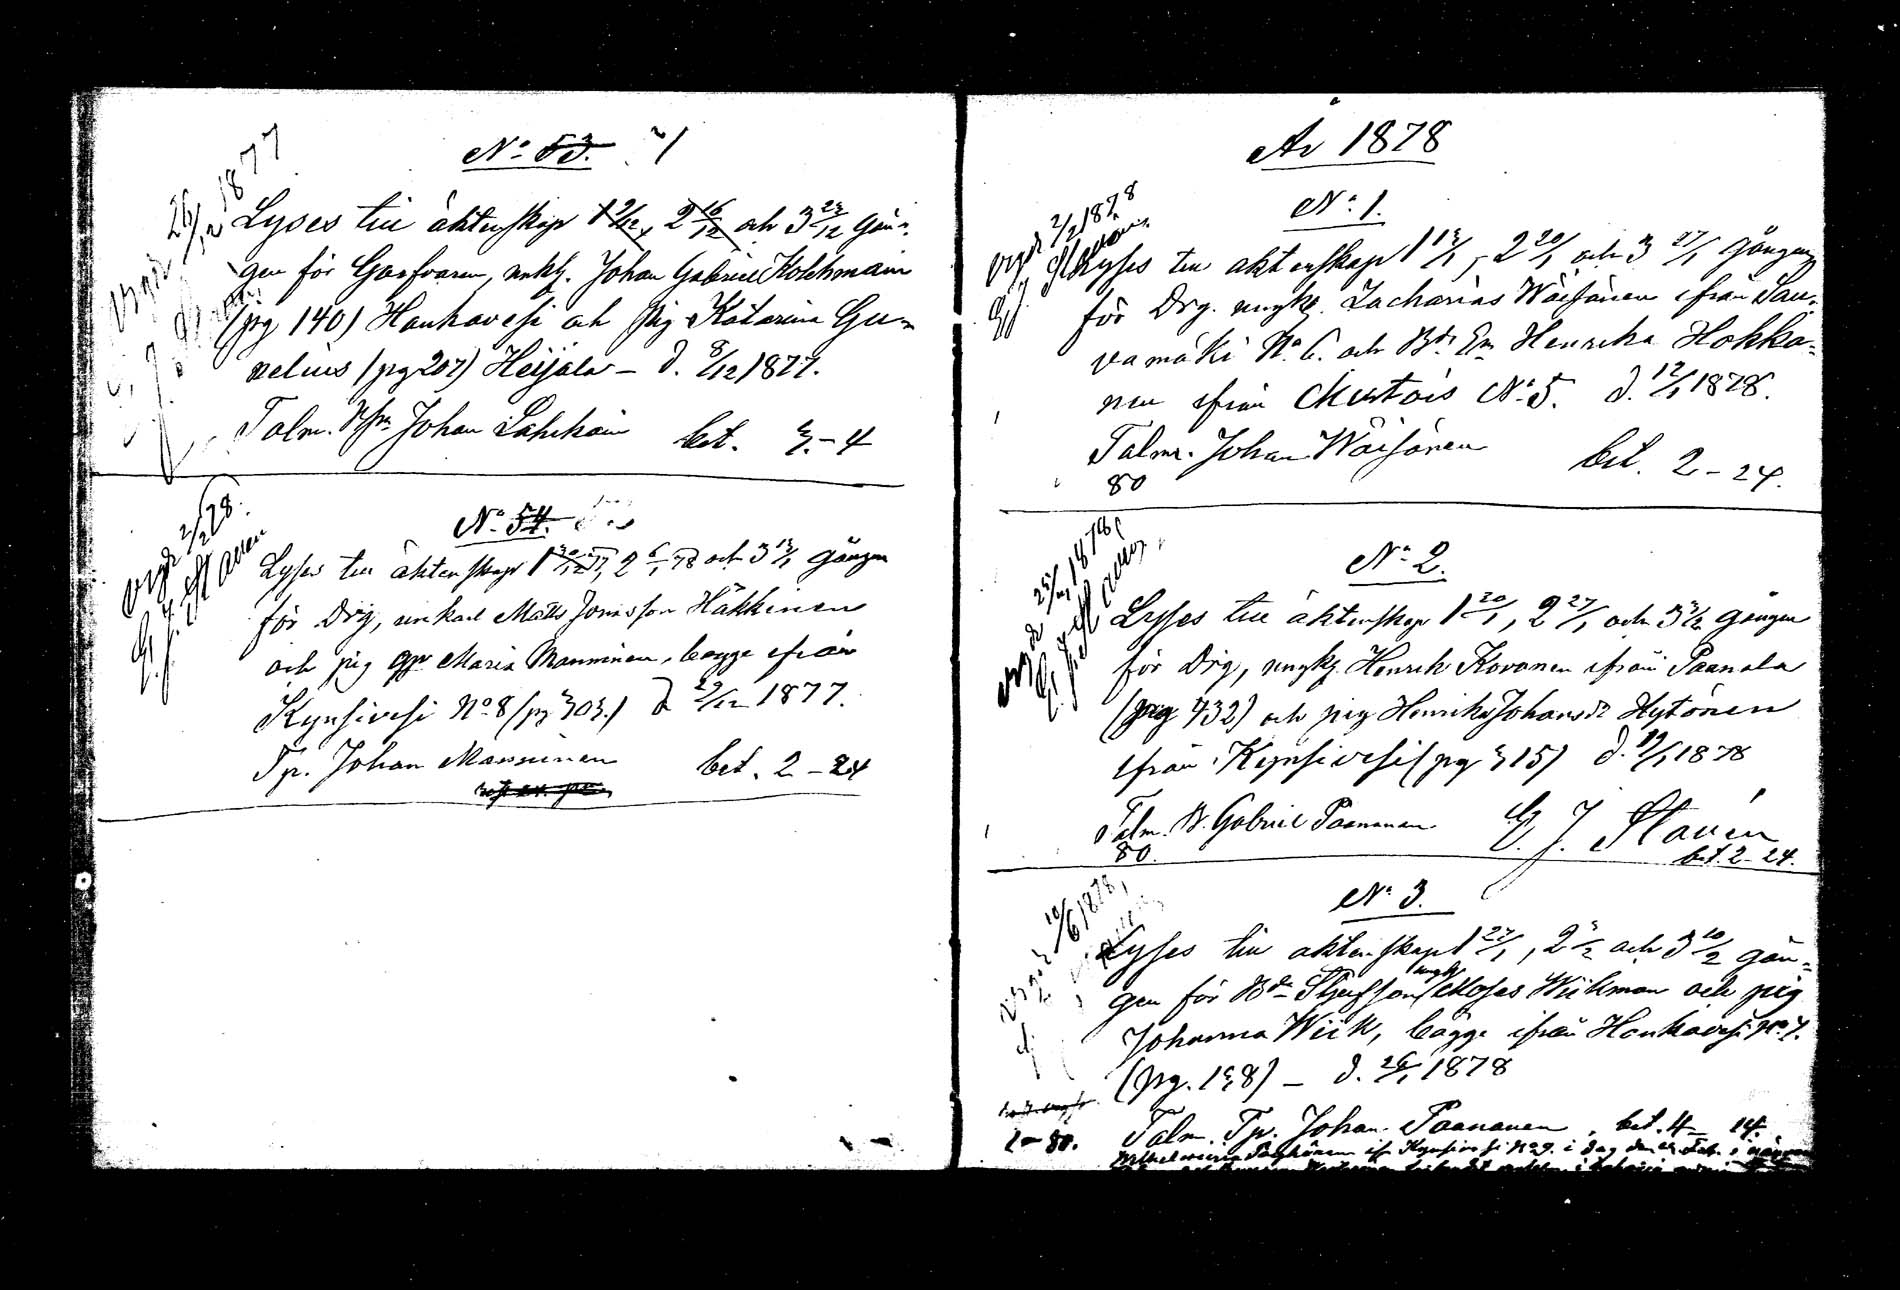 No 53.
Lyses till äktenskap 1 2/12, 2 16/12 och 3 23/12 gån-
gen för Garfvaren, unkg. Johan Gabriel Kolehmain
(pg 140) Hankavesi och pig Katarina Gu-
nelius (pg 207) Heijala – d. 8/12 1877.
Talm. Johan Lahikain bet. 3.–4
26/12 1877
No 54.
Lyses till äktenskap 1 30/12 77, 2 6/1 78 och 3 13/1 gången
för Drg, unkarl Matts Jonasson Häkkinen
och pig Maria Manninen, bägge ifrån
Kynsivesi No 8 (pg 303.) d 29/12 1877.
Tp. Johan Manninen bet. 2–24
vigde 2/2 78.
År 1878
No 1.
Lyses till äktenskap 1 13/1, 2 20/1 och 3 27/1 gången
för Drg. ungkg. Zacharias Wäisänen ifrån Sau-
vamäki No 6. och Henrika Hokka-
nen ifrån Mustois No 5. d. 12/1 1878.
Talm. Johan Wäisänen bet. 2–24.
80
vigde 2/2 1878
No 2.
Lyses till äktenskap 1 20/1, 2 27/1 och 3 3/2 gången
för Drg, ungkg. Henrik Kovanen ifrån Paanala
(pag 432) och pig Henrika Johansdr Hytönen
ifrån Kynsivesi (pg 315) d. 19/1 1878
Talm. B. Gabriel Paananen E. J. Stavén
80. bet. 2–24.
No 3.
Lyses till äktenskap 1 27/1, 2 3/2 och 3 10/2 gån-
gen för Bde Styfson ungkg Moses Wiikman och pig
Johanna Wiik, bägge ifrån Hankavesi No 7.
(pg. 138) – d. 26/1 1878
Talm. Tp. Johan Paananen. bet. 4– 14.
10/6 1878
2–80.